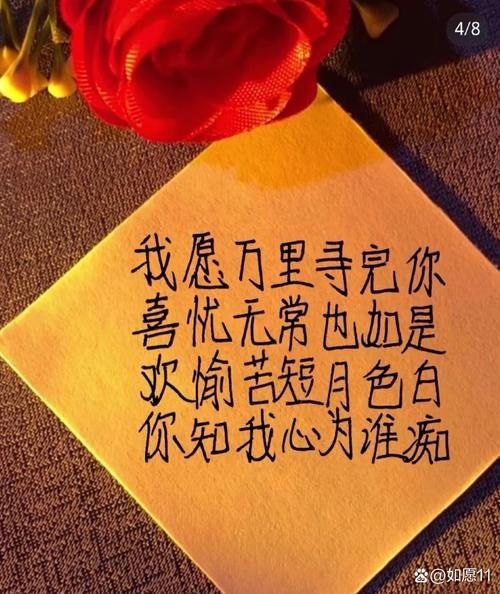 4/8
我愿万里寻完你
喜忧无常也如是
欢愉苦短月色白
你知我心为谁痴
@如愿11